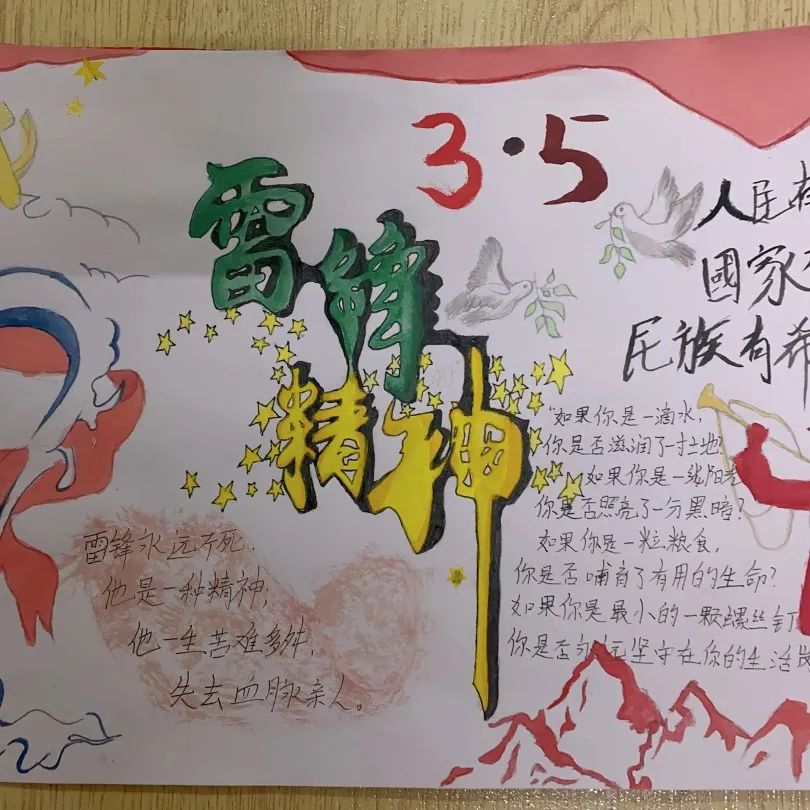 3·5
雷锋
精神
人民有
國家
民族有希
"如果你是一滴水,
你是否滋润了一寸土地?
如果你是一线阳光
你是否照亮了一分黑暗?
如果你是一粒粮食,
你是否哺育了有用的生命?
如果你是最小的一颗螺丝钉
你是否永远坚守在你的生活岗
雷锋永远不死,
他是一种精神;
他一生苦难多舛,
失去血脉亲人。